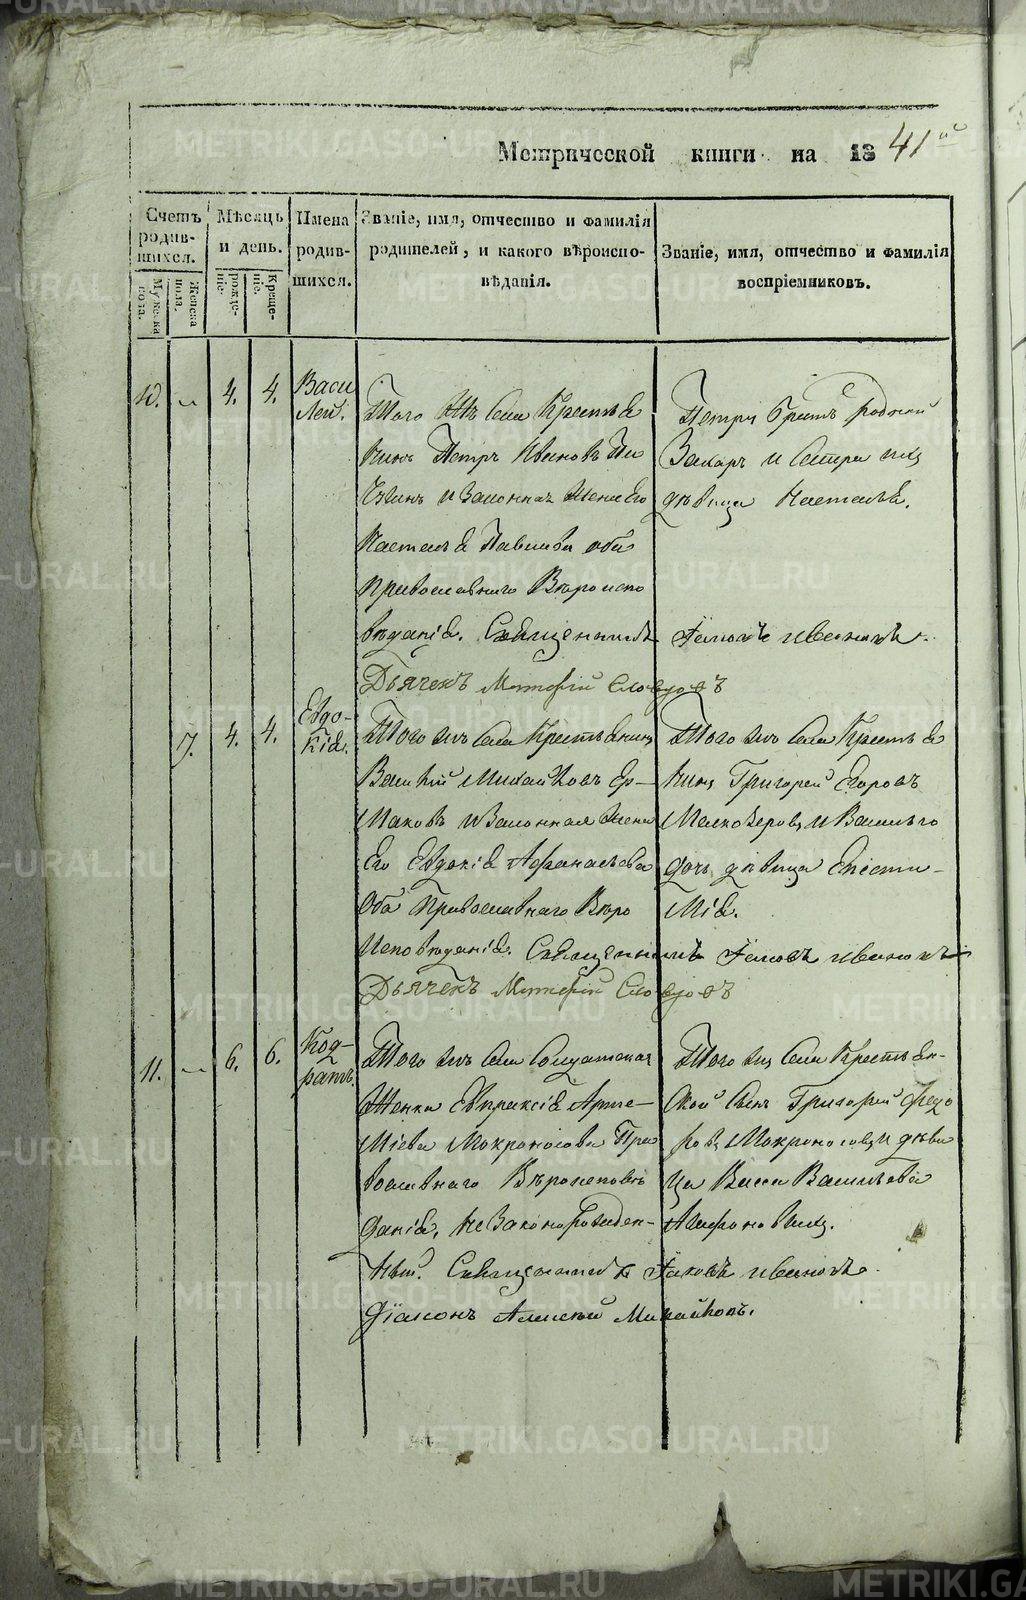 Метрической книги на 1841й
Счетъ родив-шихся.
Мужеска пола.
Женска пола.
Мѣсяцъ и день.
рожде-ніе.
Креще-ніе.
Имена родив-шихся.
Званіе, имя, отчество и фамилія
родителей, и какого вѣроиспо-
вѣданія.
Званіе, имя, отчество и фамилія
воспріемниковъ.
10. 4. 4.
Васи
лей.
Того жъ села Крестья
нинъ Петръ Ивановъ Пи
и законная жена его
Настасья Павлова оба
православнаго вѣроиспо
вѣданія. Священникъ Іаковъ Ивановъ.
Дьячекъ Словцовъ
Петра братъ родной
Захаръ и сестра ихъ
дѣвица Настасья.
7. 4. 4.
Евдо-
кія.
Того жъ села крестьянинъ
Василій Михайловъ Ер-
маковъ и законная жена
его Евдокія Афанасьева
оба православнаго вѣро
исповѣданія. Священникъ Іаковъ Ивановъ
Дьячекъ Словцовъ
Того жъ села крестья
нинъ Григорей Егоровъ
Мелкозеровъ и Василья
дочь дѣвица
11. 6. 6.
Код-
ратъ.
Того жъ села солдатская
женка Евпраксія Арте-
міева Мокроносова пра
вославнаго вѣроисповѣ
данія, незаконорожден-
ный. Священникъ Іаковъ Ивановъ.
Діаконъ Алексѣй Михайловъ.
Того жъ села крестьян-
ской сынъ Григорей Федо
ровъ Мокроносовъ и дѣви
ца Васса Васильева